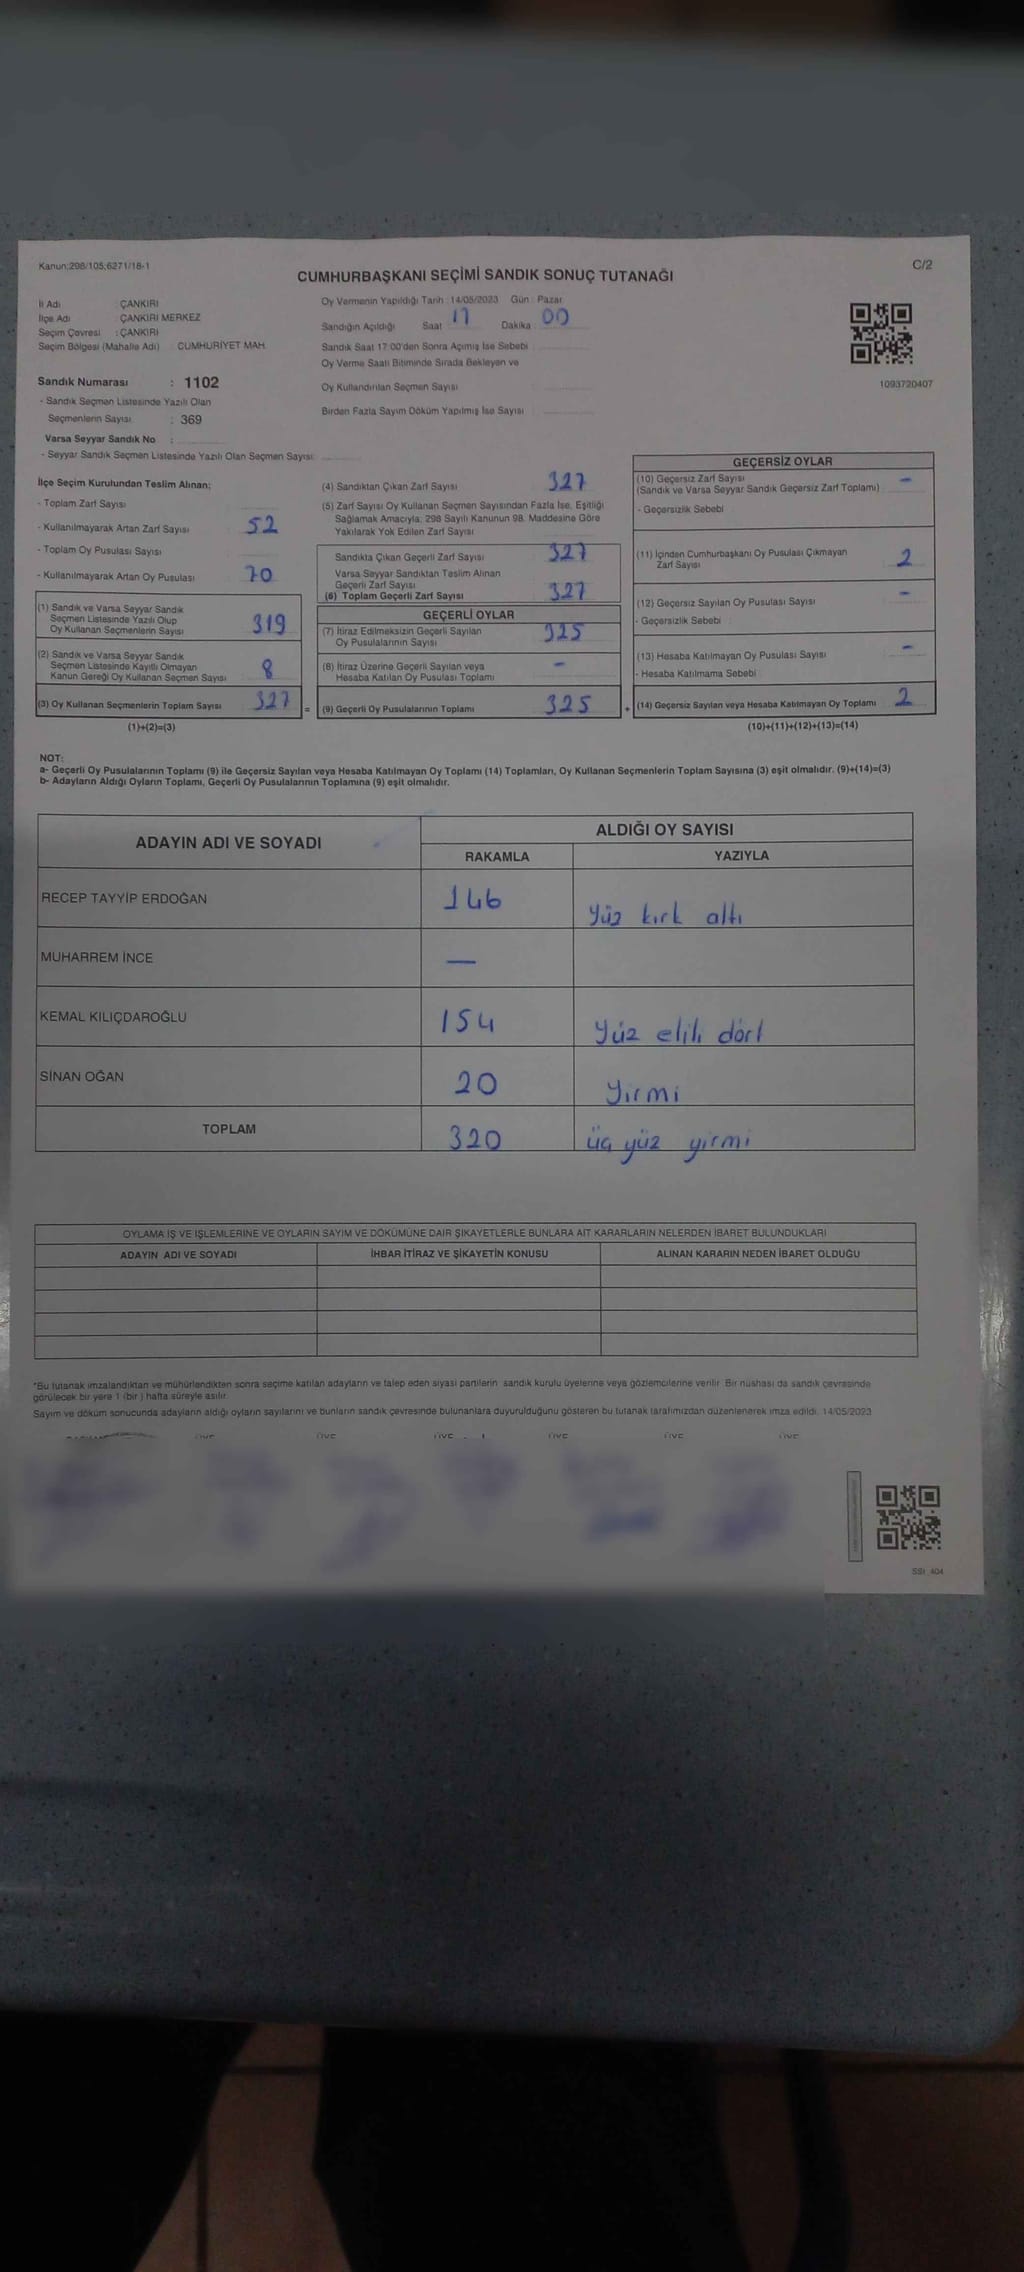 Kanun:298/105;6271/18-1
C/2
CUMHURBAŞKANI SEÇİMİ SANDIK SONUÇ TUTANAĞI
İl Adı : ÇANKIRI
İlçe Adı : ÇANKIRI MERKEZ
Seçim Çevresi : ÇANKIRI
Seçim Bölgesi (Mahalle Adı) : CUMHURİYET MAH.
Oy Vermenin Yapıldığı Tarih : 14/05/2023 Gün : Pazar
Sandığın Açıldığı Saat 17 Dakika 00
Sandık Saat 17:00'den Sonra Açımış İse Sebebi
Oy Verme Saati Bitiminde Sırada Bekleyen ve
Oy Kullandırılan Seçmen Sayısı
Birden Fazla Sayım Döküm Yapılmış İse Sayısı
1093720407
Sandık Numarası : 1102
- Sandık Seçmen Listesinde Yazılı Olan
Seçmenlerin Sayısı : 369
Varsa Seyyar Sandık No :
- Seyyar Sandık Seçmen Listesinde Yazılı Olan Seçmen Sayısı:
İlçe Seçim Kurulundan Teslim Alınan;
- Toplam Zarf Sayısı
- Kullanılmayarak Artan Zarf Sayısı 52
- Toplam Oy Pusulası Sayısı
- Kullanılmayarak Artan Oy Pusulası 70
(1) Sandık ve Varsa Seyyar Sandık
Seçmen Listesinde Yazılı Olup
Oy Kullanan Seçmenlerin Sayısı 319
(2) Sandık ve Varsa Seyyar Sandık
Seçmen Listesinde Kayıtlı Olmayan
Kanun Gereği Oy Kullanan Seçmen Sayısı 8
(3) Oy Kullanan Seçmenlerin Toplam Sayısı 327 =
(1)+(2)=(3)
(4) Sandıktan Çıkan Zarf Sayısı 327
(5) Zarf Sayısı Oy Kullanan Seçmen Sayısından Fazla İse, Eşitliği
Sağlamak Amacıyla; 298 Sayılı Kanunun 98. Maddesine Göre
Yakılarak Yok Edilen Zarf Sayısı
Sandıkta Çıkan Geçerli Zarf Sayısı 327
Varsa Seyyar Sandıktan Teslim Alınan
Geçerli Zarf Sayısı
(6) Toplam Geçerli Zarf Sayısı 327
GEÇERLİ OYLAR
(7) İtiraz Edilmeksizin Geçerli Sayılan
Oy Pusulalarının Sayısı 325
(8) İtiraz Üzerine Geçerli Sayılan veya
Hesaba Katılan Oy Pusulası Toplamı -
(9) Geçerli Oy Pusulalarının Toplamı 325 +
GEÇERSİZ OYLAR
(10) Geçersiz Zarf Sayısı -
(Sandık ve Varsa Seyyar Sandık Geçersiz Zarf Toplamı)
- Geçersizlik Sebebi
(11) İçinden Cumhurbaşkanı Oy Pusulası Çıkmayan
Zarf Sayısı 2
(12) Geçersiz Sayılan Oy Pusulası Sayısı -
- Geçersizlik Sebebi :
(13) Hesaba Katılmayan Oy Pusulası Sayısı -
- Hesaba Katılmama Sebebi
(14) Geçersiz Sayılan veya Hesaba Katılmayan Oy Toplamı 2
(10)+(11)+(12)+(13)=(14)
NOT:
a- Geçerli Oy Pusulalarının Toplamı (9) ile Geçersiz Sayılan veya Hesaba Katılmayan Oy Toplamı (14) Toplamları, Oy Kullanan Seçmenlerin Toplam Sayısına (3) eşit olmalıdır. (9)+(14)=(3)
b- Adayların Aldığı Oyların Toplamı, Geçerli Oy Pusulalarının Toplamına (9) eşit olmalıdır.
ADAYIN ADI VE SOYADI ALDIĞI OY SAYISI
RAKAMLA YAZIYLA
RECEP TAYYİP ERDOĞAN 146 Yüz kırk altı
MUHARREM İNCE —
KEMAL KILIÇDAROĞLU 154 Yüz elili dört
SİNAN OĞAN 20 Yirmi
TOPLAM 320 üç yüz yirmi
OYLAMA İŞ VE İŞLEMLERİNE VE OYLARIN SAYIM VE DÖKÜMÜNE DAİR ŞİKAYETLERLE BUNLARA AİT KARARLARIN NELERDEN İBARET BULUNDUKLARI
ADAYIN ADI VE SOYADI İHBAR İTİRAZ VE ŞİKAYETİN KONUSU ALINAN KARARIN NEDEN İBARET OLDUĞU
*Bu tutanak imzalandıktan ve mühürlendikten sonra seçime katılan adayların ve talep eden siyasi partilerin sandık kurulu üyelerine veya gözlemcilerine verilir. Bir nüshası da sandık çevresinde
görülecek bir yere 1 (bir) hafta süreyle asılır.
Sayım ve döküm sonucunda adayların aldığı oyların sayılarını ve bunların sandık çevresinde bulunanlara duyurulduğunu gösteren bu tutanak tarafımızdan düzenlenerek imza edildi. 14/05/2023
ÜYE ÜYE ÜYE ÜYE ÜYE ÜYE
SSI_404